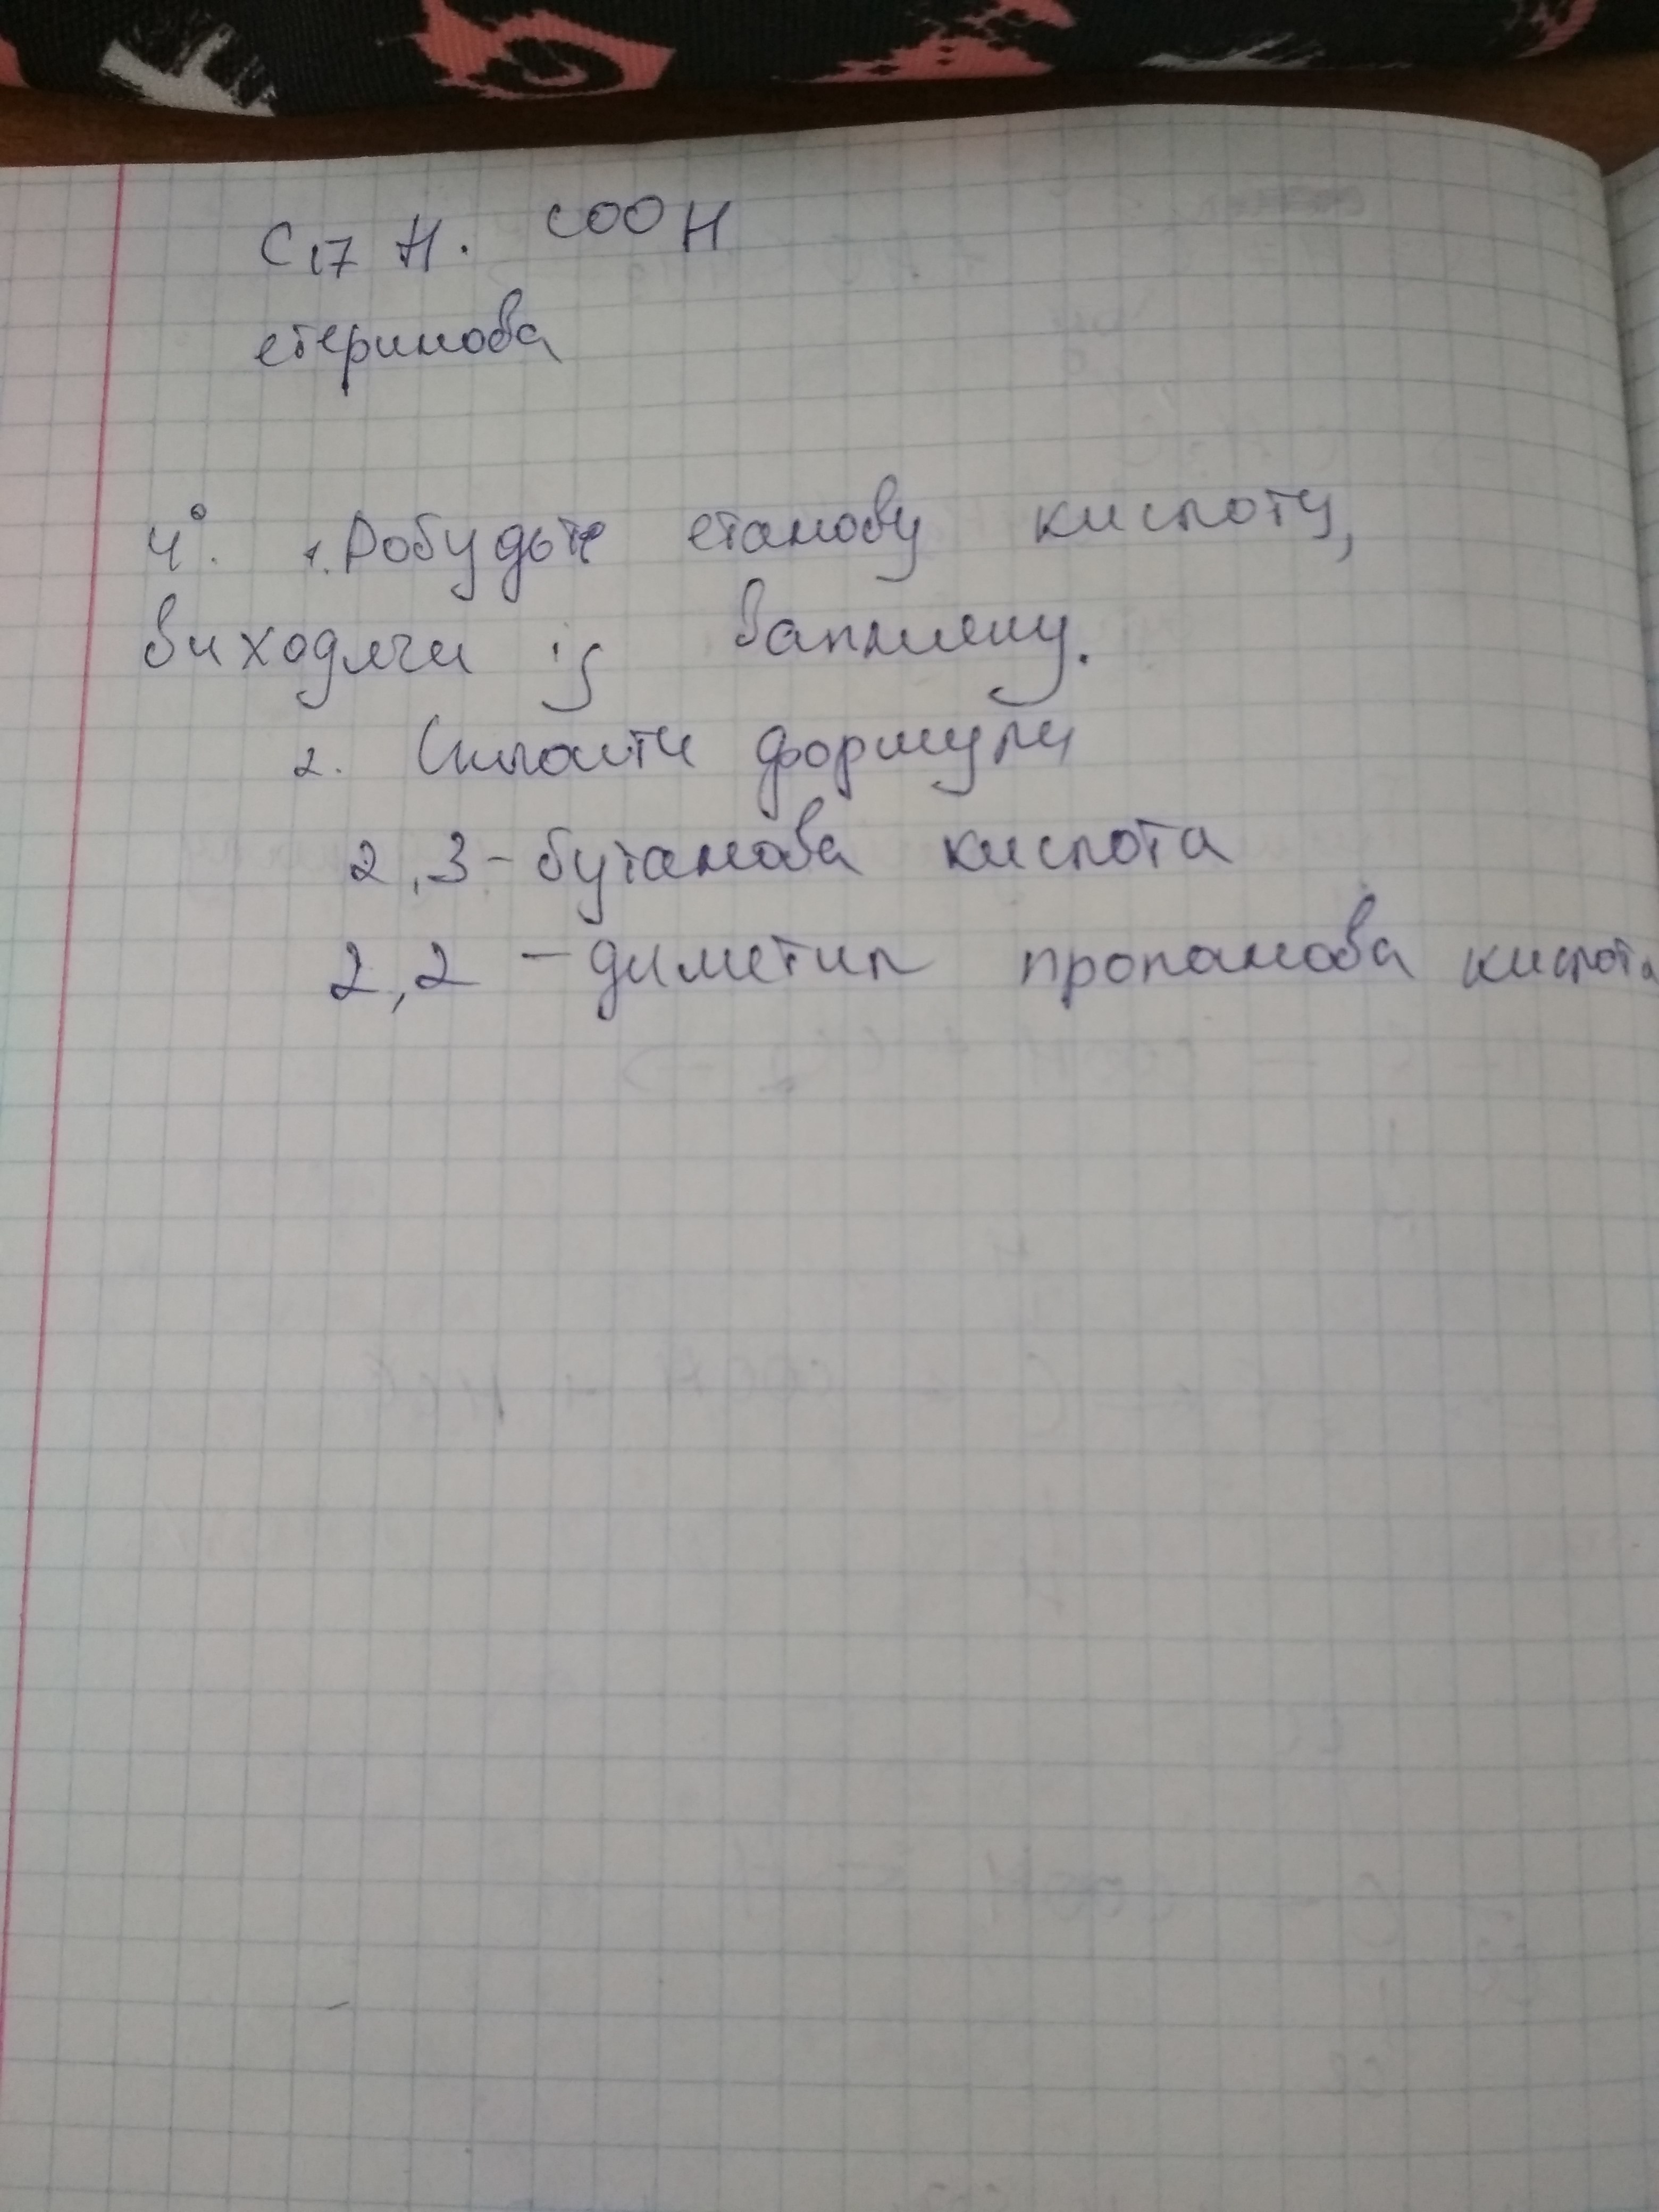 C17 H. COOH
етеринова
4°. 1. Добудьте етанову кислоту,
виходячи із вапняку.
2. Скласти формули
2,3 - бутанова кислота
2,2 - диметил пропанова кислота